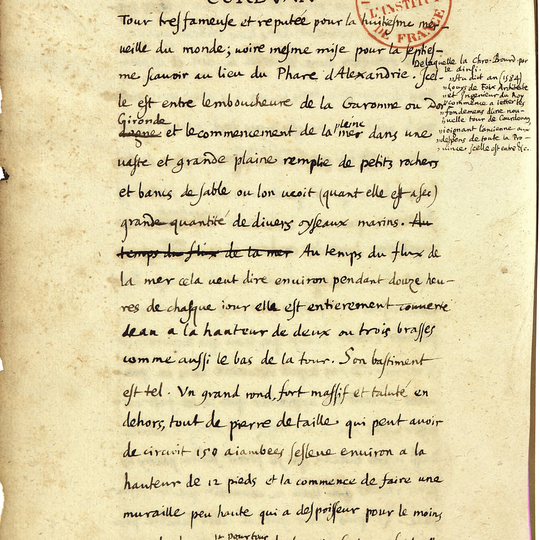 Tour tresfameuse et reputée pour la huitiesme mer-
ueille du monde; uoire mesme mise pour la septies-
me scauoir au lieu du Phare d'Alexandrie. Icel-
le est entre lemboucheure de la Garomne ou Dor
Gironde
dogne et le commencement de la pleine mer dans une
uaste et grande plaine remplie de petits rochers
et bancs de sable ou lon uoit (quant elle est a sec)
grande quantité de diuers oyseaux marins. Au
temps du flux de la mer Au temps du flux de
la mer cela ueut dire enuiron pendant douze heu-
res de chasque iour elle est entierement couuerte
deau a la hauteur de deux ou trois brasses
comme aussi le bas de la tour. Son bastiment
est tel. Vn grand rond, fort massif et taluté en
dehors, tout de pierre de taille qui peut auoir
de circuit 150 aiambees sesleue enuiron a la
hauteur de 12 pieds et la commence de faire une
muraille peu haute qui a despoisseur pour le moins
L'INSTITUT
DE FRANCE
De laquelle la Chro. Bourd. par
le dinsi.
"Au dit an (1584)
"Louys de Foix Architecte
"et ingenieur du Roy
"commence a ietter les
"fondemens dune nou-
"uelle tour de Courdonan
"ioignant lancienne aux
"despens de toute la Pro-
"uince